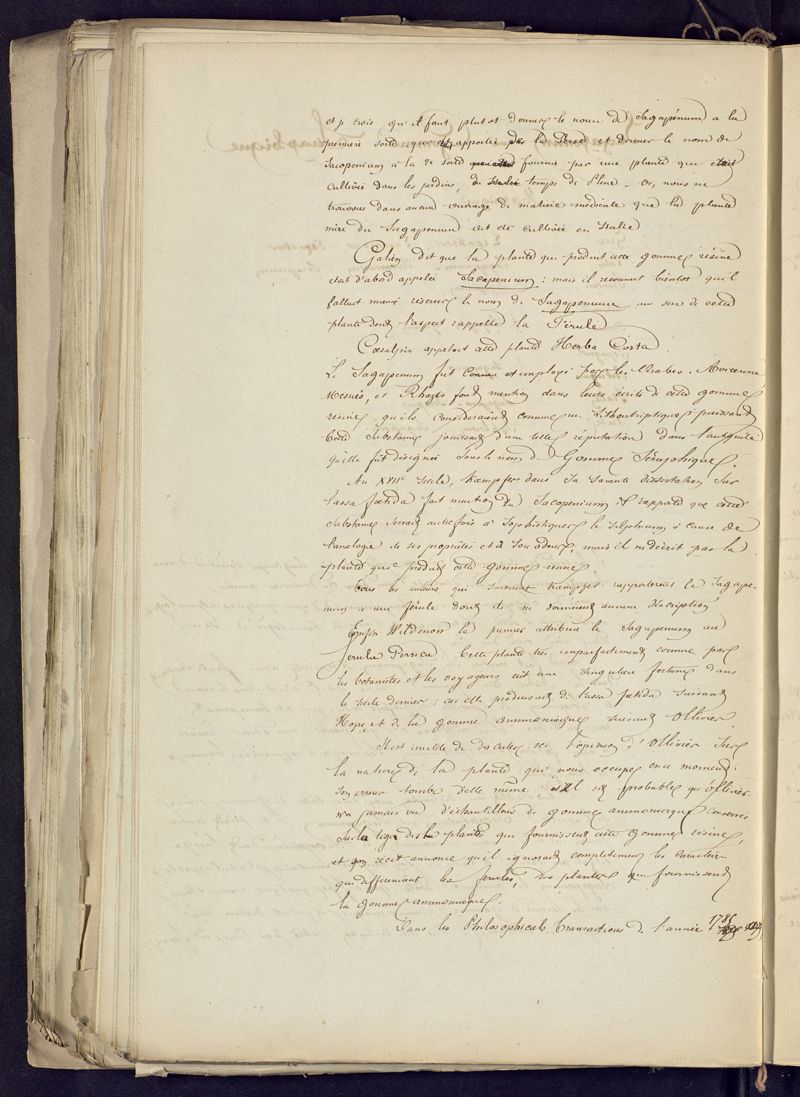 et je crois qu'il faut plutot donner le nom de Sagapénum a la
premiere sorte que apportée de la Perse et donner le nom de
Sacopenium à la 2e sorte fournie par une plante qui était
cultivée dans les jardins, du temps de Pline. Or, nous ne
trouvons dans aucun ouvrage de matiere médicale que la plante
mère du Sagapenum ait été cultivée en Italie
Galien dit que la plante qui produit cette gomme résine
etait d'abord appelée Sacopenium : mais il reconnut bientot qu'il
fallait mieux réserver le nom de Sagapenum au suc de cette
plante dont l'aspect rappelle la Férule
Cœsalpin appelait cette plante Herba Costa
Le Sagapenum fut connu et employé par les Arabes. Avicenne
Mesués, et Rhazés font mention dans leurs écrits de cette gomme
résine qu'ils considéraient comme un Lithontriptique puissant
Cette substance jouissait d'une telle réputation dans l'antiquité
qu'elle fut désignée sous le nom de Gomme Séraphique.
Au XVIIe siècle, Kæmpfer dans sa savante dissertation sur
l'assa fœtida fait mention du Sacopenium. Il rapporte que cette
substance servait autrefois à sophistiquer le silphium à cause de
l'analogie de ses propriétés et de son odeur, mais il ne décrit pas la
plante qui produit cette gomme résine
Tous les auteurs qui suivent Kæmpfer rapportèrent le Sagape-
num à une férule dont ils ne donnèrent aucune description
Enfin Wildenow le premier attribua le Sagapenum au
ferula Persica. Cette plante très imparfaitement connue par
les botanistes et les voyageurs eût une singulière fortune dans
le siècle dernier : car elle produisait de l'assa fœtida suivant
Hope, et de la gomme ammoniaque suivant Ollivier.
Il est inutile de discuter ici l'opinion d'Ollivier sur
la nature de la plante qui nous occupe en ce moment :
son erreur tombe d'elle même, il est probable qu'Ollivier
n'a jamais vu d'échantillons de gomme ammoniaque conservés
sur la tige des plantes qui fournissent cette gomme résine,
et son récit annonce qu'il ignorait complètement les caractères
qui différencient les ferules, des plantes qui fournissent
la gomme ammoniaque.
Dans les Philosophical transactions de l'année 1785